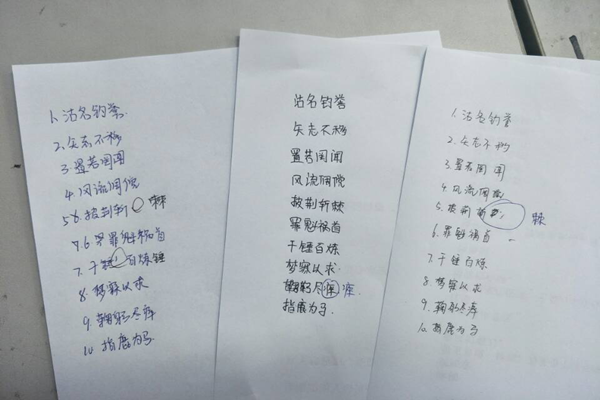 1、沽名钓誉.
2、矢志不移
3、置若罔闻
4、风流倜傥
5、披荆斩 棘
6、罪魁祸首
7、千锤百炼
8、梦寐以求
9、鞠躬尽瘁
10、指鹿为马
沽名钓誉
矢志不移
置若罔闻
风流倜傥
披荆斩棘
罪魁祸首
千锤百炼
梦寐以求
鞠躬尽 瘁
指鹿为马.
1、沽名钓誉
2、矢志不移
3、置若罔闻
4、风流倜傥
5、披荆斩 棘
6、罪魁祸首
7、千锤百炼
8、梦寐以求
9、鞠躬尽瘁
10、指鹿为马